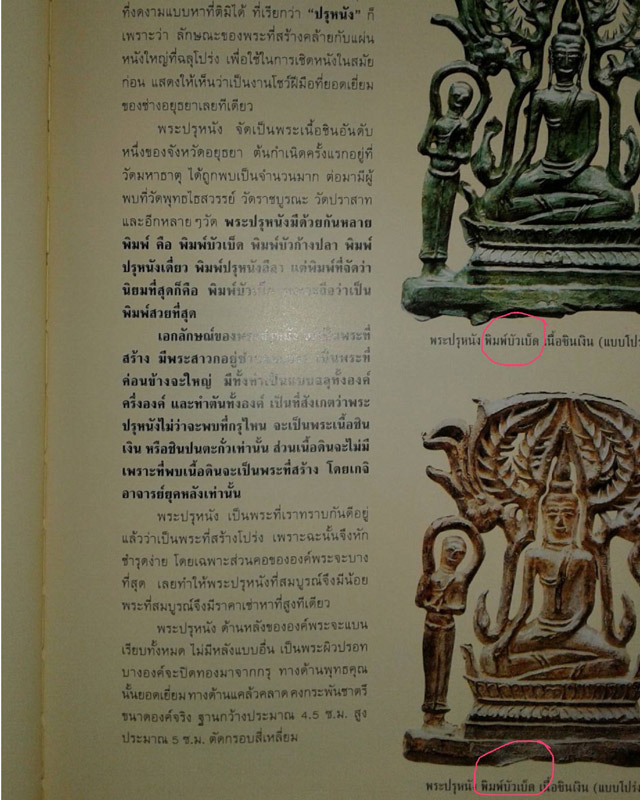 ที่งดงามแบบหาที่ติมิได้ ที่เรียกว่า “ปรุหนัง” ก็
เพราะว่า ลักษณะของพระที่สร้างคล้ายกับแผ่น
หนังใหญ่ที่ฉลุโปร่ง เพื่อใช้ในการเชิดหนังในสมัย
ก่อน แสดงให้เห็นว่าเป็นงานโชว์ฝีมือที่ยอดเยี่ยม
ของช่างอยุธยาเลยทีเดียว
พระปรุหนัง จัดเป็นพระเนื้อชินอันดับ
หนึ่งของจังหวัดอยุธยา ต้นกำเนิดครั้งแรกอยู่ที่
วัดมหาธาตุ ได้ถูกพบเป็นจำนวนมาก ต่อมามีผู้
พบที่วัดพุทธไธสวรรย์ วัดราชบูรณะ วัดปราสาท
และอีกหลายๆวัด พระปรุหนังมีด้วยกันหลาย
พิมพ์ คือ พิมพ์บัวเบ็ด พิมพ์บัวก้างปลา พิมพ์
ปรุหนังเดี่ยว พิมพ์ปรุหนังลีลา แต่พิมพ์ที่จัดว่า
นิยมที่สุดก็คือ พิมพ์บัวเบ็ด ถือว่าเป็น
พิมพ์สวยที่สุด
เอกลักษณ์ของพระ พระที่
สร้าง มีพระสาวกอยู่ เป็นพระที่
ค่อนข้างจะใหญ่ มีทั้งทำเป็นแบบฉลุทั้งองค์
ครึ่งองค์ และทำตันทั้งองค์ เป็นที่สังเกตว่าพระ
ปรุหนังไม่ว่าจะพบที่กรุไหน จะเป็นพระเนื้อชิน
เงิน หรือชินปนตะกั่วเท่านั้น ส่วนเนื้อดินจะไม่มี
เพราะที่พบเนื้อดินจะเป็นพระที่สร้าง โดยเกจิ
อาจารย์ยุคหลังเท่านั้น
พระปรุหนัง เป็นพระที่เราทราบกันดีอยู่
แล้วว่าเป็นพระที่สร้างโปร่ง เพราะฉะนั้นจึงหัก
ชำรุดง่าย โดยเฉพาะส่วนคอขององค์พระจะบาง
ที่สุด เลยทำให้พระปรุหนังที่สมบูรณ์จึงมีน้อย
พระที่สมบูรณ์จึงมีราคาเช่าหาที่สูงทีเดียว
พระปรุหนัง ด้านหลังขององค์พระจะแบน
เรียบทั้งหมด ไม่มีหลังแบบอื่น เป็นพระผิวปรอท
บางองค์จะปิดทองมาจากกรุ ทางด้านพุทธคุณ
นั้นยอดเยี่ยมทางด้านแคล้วคลาด คงกระพันชาตรี
ขนาดองค์จริง ฐานกว้างประมาณ 4.5 ซ.ม. สูง
ประมาณ 5 ซ.ม. ตัดกรอบสี่เหลี่ยม
พระปรุหนัง พิมพ์บัวเบ็ด เนื้อชินเงิน (แบบโปร่
พระปรุหนัง พิมพ์บัวเบ็ด เนื้อชินเงิน (แบบโปร่ง